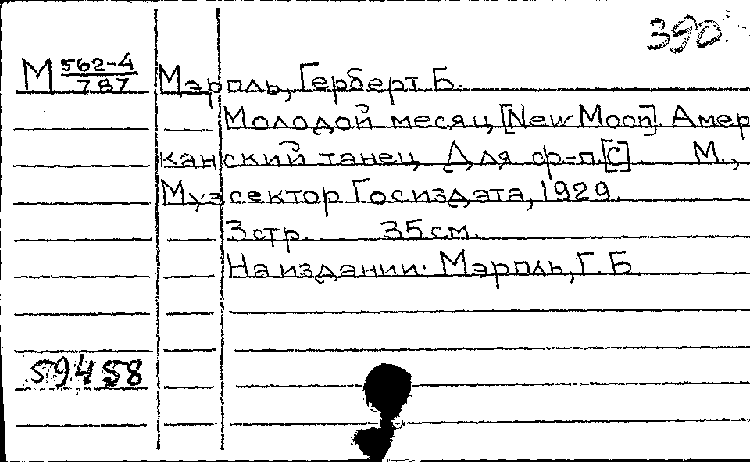 390
М 562-4/787
Мэрпль, Герберт Б.
Молодой месяц [New Moon]. Амер
канский танец Для ф-п. [с] М.,
Музсектор Госиздата, 1929.
3 стр. 35 см.
На издании: Мэрпль, Г. Б.
59458